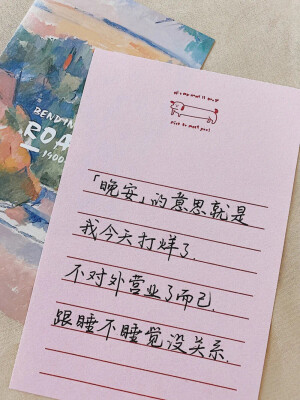 BENDIN
ROA
nice to meet you!
「晚安」的意思就是
我今天打烊了.
不对外营业了而已.
跟睡不睡觉没关系.